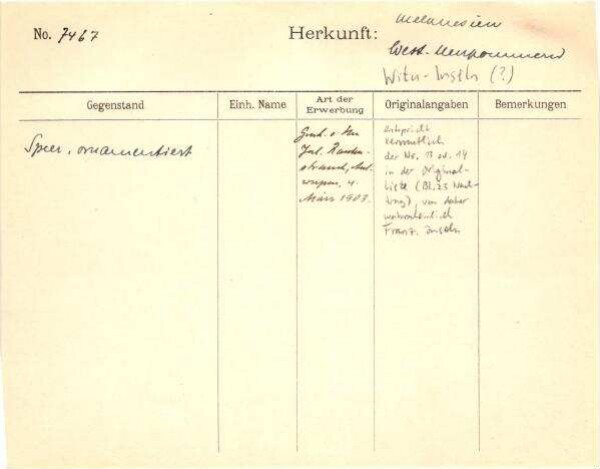 No. 7467
Herkunft:
Melanesien
West-Neupommern
Witu-Inseln (?)
Gegenstand
Einh. Name
Art der Erwerbung
Originalangaben
Bemerkungen
Speer, ornamentiert
Gesch. v. Hrn
März 1903.
entspricht
vermutlich
der No. 13 od. 14
in der Original-
liste (Bl. 25
von daher
wahrscheinlich
Franz. Inseln